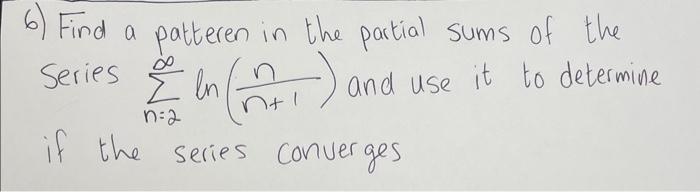 6) Find a patteren in the partial sums of the
Series ∞ Σ n=2 ln(n/n+1) and use it to determine
if the series converges